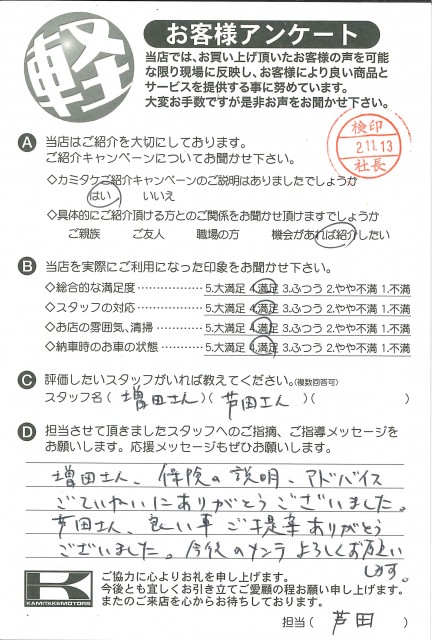 軽
お客様アンケート
当店では、お買い上げ頂いたお客様の声を可能
な限り現場に反映し、お客様により良い商品と
サービスを提供する事に努めています。
大変お手数ですが是非お声をお聞かせ下さい。
検印
2.11.13
社長
A 当店はご紹介を大切にしております。
ご紹介キャンペーンについてお聞かせ下さい。
◇カミタケご紹介キャンペーンのご説明はありましたでしょうか
はい いいえ
◇具体的にご紹介頂ける方とのご関係をお聞かせ頂けますでしょうか
ご親族 ご友人 職場の方 機会があれば紹介したい
B 当店を実際にご利用になった印象をお聞かせ下さい。
◇総合的な満足度 ……………… 5.大満足 4.満足 3.ふつう 2.やや不満 1.不満
◇スタッフの対応 ……………… 5.大満足 4.満足 3.ふつう 2.やや不満 1.不満
◇お店の雰囲気、清掃 ………… 5.大満足 4.満足 3.ふつう 2.やや不満 1.不満
◇納車時のお車の状態 ………… 5.大満足 4.満足 3.ふつう 2.やや不満 1.不満
C 評価したいスタッフがいれば教えてください。(複数回答可)
スタッフ名( 増田さん )( 芦田さん )( )
D 担当させて頂きましたスタッフへのご指摘、ご指導メッセージを
お願いします。応援メッセージもぜひお願いします。
増田さん、保険の説明、アドバイス
ごていねいにありがとうございました。
芦田さん、良い車ご提案ありがとう
ございました。今後のメンテよろしくお願い
します。
K
KAMITAKEMOTORS
ご協力に心よりお礼を申し上げます。
今後とも宜しくお引き立てご愛顧の程お願い申し上げます。
またのご来店を心からお待ちしております。
担当( 芦田 )